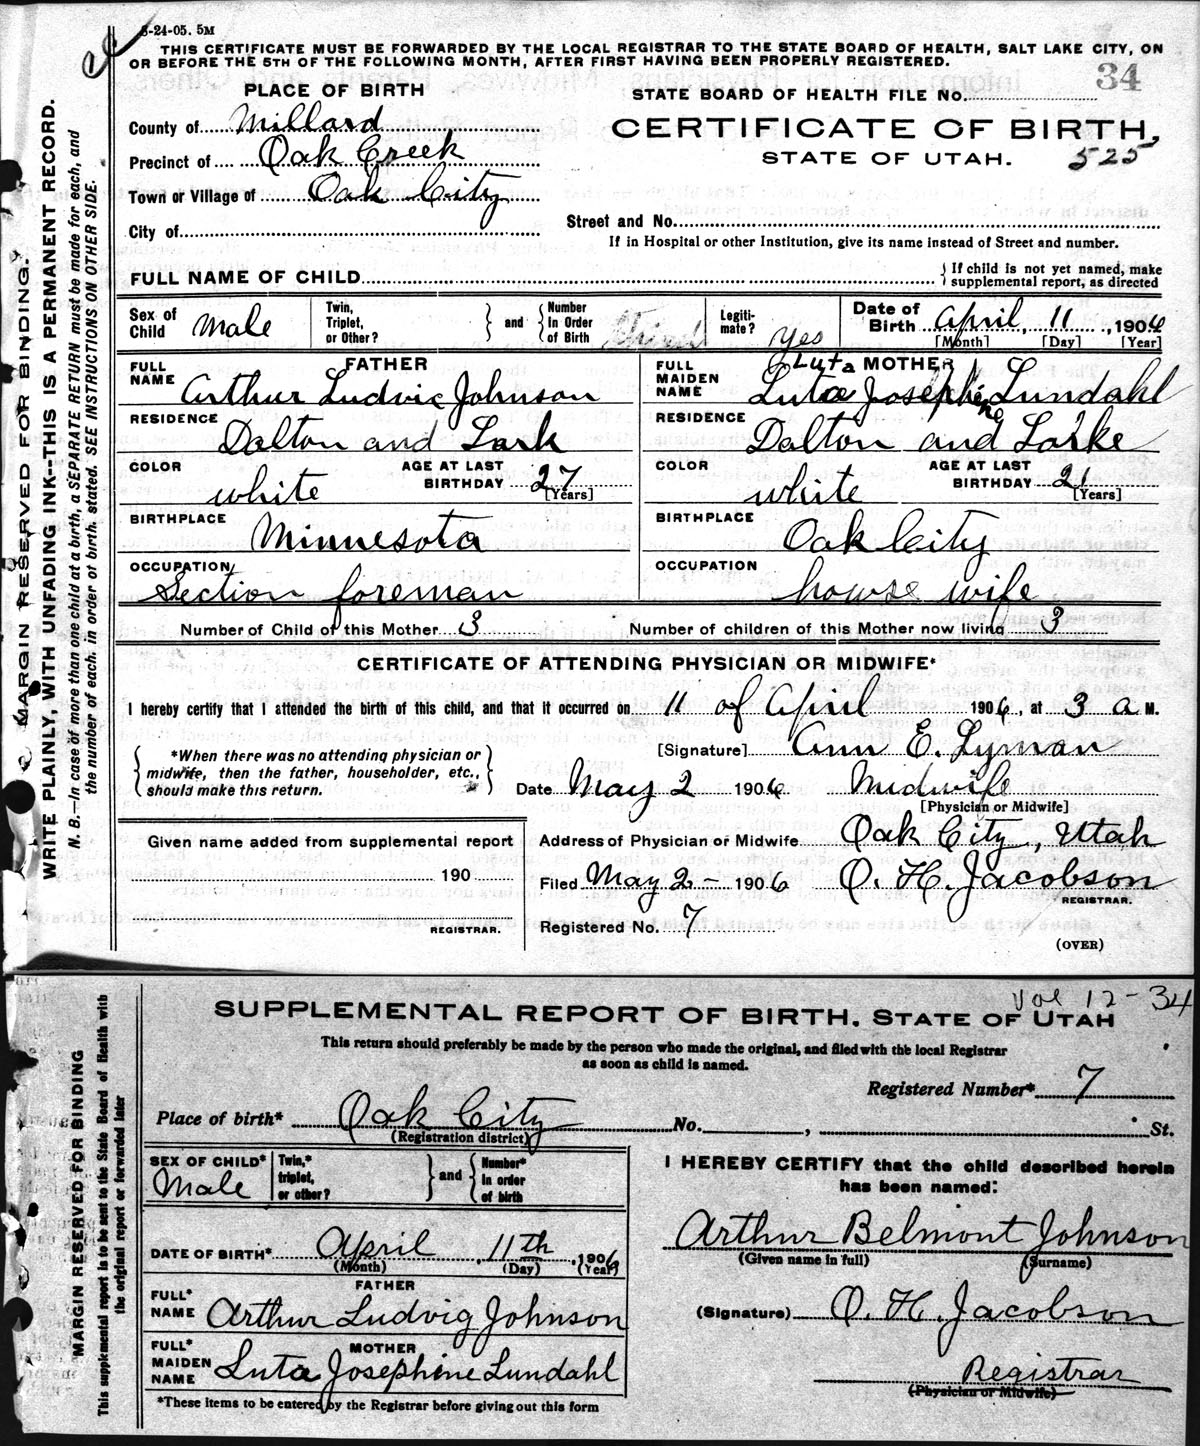 8-24-05. 5M
THIS CERTIFICATE MUST BE FORWARDED BY THE LOCAL REGISTRAR TO THE STATE BOARD OF HEALTH, SALT LAKE CITY, ON
OR BEFORE THE 5TH OF THE FOLLOWING MONTH, AFTER FIRST HAVING BEEN PROPERLY REGISTERED.
34
PLACE OF BIRTH
STATE BOARD OF HEALTH FILE No.
County of Millard
CERTIFICATE OF BIRTH,
Precinct of Oak Creek
STATE OF UTAH. 525
Town or Village of Oak City
City of
Street and No.
If in Hospital or other Institution, give its name instead of Street and number.
FULL NAME OF CHILD
If child is not yet named, make
supplemental report, as directed
Sex of Child Male
Twin, Triplet, or Other?
and
Number In Order of Birth Third
Legiti-mate? Yes
Date of Birth April, 11, 1906
[Month] [Day] [Year]
FATHER
FULL NAME Arthur Ludvic Johnson
RESIDENCE Dalton and Lark
COLOR white
AGE AT LAST BIRTHDAY 27 [Years]
BIRTHPLACE Minnesota
OCCUPATION Section foreman
Luta MOTHER
FULL MAIDEN NAME Luta Josephine Lundahl
RESIDENCE Dalton and Larke
COLOR white
AGE AT LAST BIRTHDAY 21 [Years]
BIRTHPLACE Oak City
OCCUPATION howse wife
Number of Child of this Mother 3
Number of children of this Mother now living 3
CERTIFICATE OF ATTENDING PHYSICIAN OR MIDWIFE*
I hereby certify that I attended the birth of this child, and that it occurred on 11 of April 1906, at 3 a M.
*When there was no attending physician or
midwife, then the father, householder, etc.,
should make this return.
[Signature] Ann E. Lyman
Date May 2 1906 Midwife
[Physician or Midwife]
Given name added from supplemental report
190
REGISTRAR.
Address of Physician or Midwife Oak City, Utah
Filed May 2 - 1906 O. H. Jacobson
REGISTRAR.
Registered No. 7
(OVER)
MARGIN RESERVED FOR BINDING.
WRITE PLAINLY, WITH UNFADING INK--THIS IS A PERMANENT RECORD.
N. B.—In case of more than one child at a birth, a SEPARATE RETURN must be made for each, and
the number of each, in order of birth, stated. SEE INSTRUCTIONS ON OTHER SIDE.
Vol 12-34
SUPPLEMENTAL REPORT OF BIRTH. STATE OF UTAH
This return should preferably be made by the person who made the original, and filed with the local Registrar
as soon as child is named.
Registered Number* 7
Place of birth* Oak City No. , St.
(Registration district)
SEX OF CHILD* Male
Twin,* triplet, or other?
and
Number* In order of birth
DATE OF BIRTH* April 11th, 1906
(Month) (Day) (Year)
FATHER
FULL* NAME Arthur Ludvig Johnson
MOTHER
FULL* MAIDEN NAME Luta Josephine Lundahl
*These items to be entered by the Registrar before giving out this form
I HEREBY CERTIFY that the child described herein
has been named:
Arthur Belmont Johnson
(Given name in full) (Surname)
(Signature) O. H. Jacobson
Registrar
(Physician or Midwife)
MARGIN RESERVED FOR BINDING
This supplemental report to be sent to the State Board of Health with
the original report or forwarded later